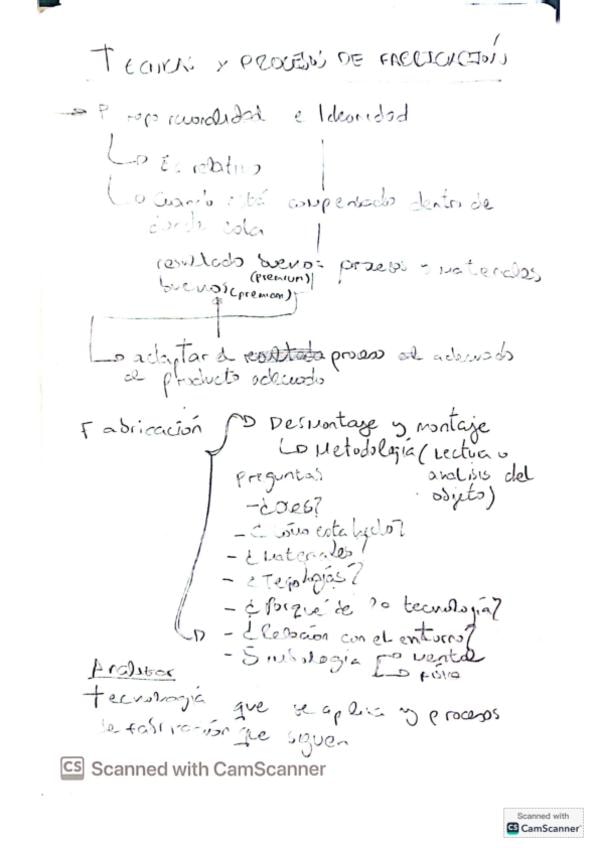 Tecnicas y PROCESOS DE FABRICACIÓN
→ Proporcionalidad e Idoneidad
Es relativo
Cuando está compensado dentro de
donde
resultado bueno = procesos y materiales
(premium)
buenos (premium)
adaptar el proceso al adecuado
al producto adecuado
Fabricación Desmontaje y montaje
Metodología (Lectura o
preguntas analisis del
objeto)
- ¿Qes?
- ¿Cómo esta hecho?
- ¿Materiales?
- ¿
- ¿Porqué de la tecnología?
- ¿Relación con el entorno?
- Simbología venta
Analizar
tecnología que se aplica y procesos
de fabricación que siguen
CS Scanned with CamScanner
Scanned with
CS CamScanner